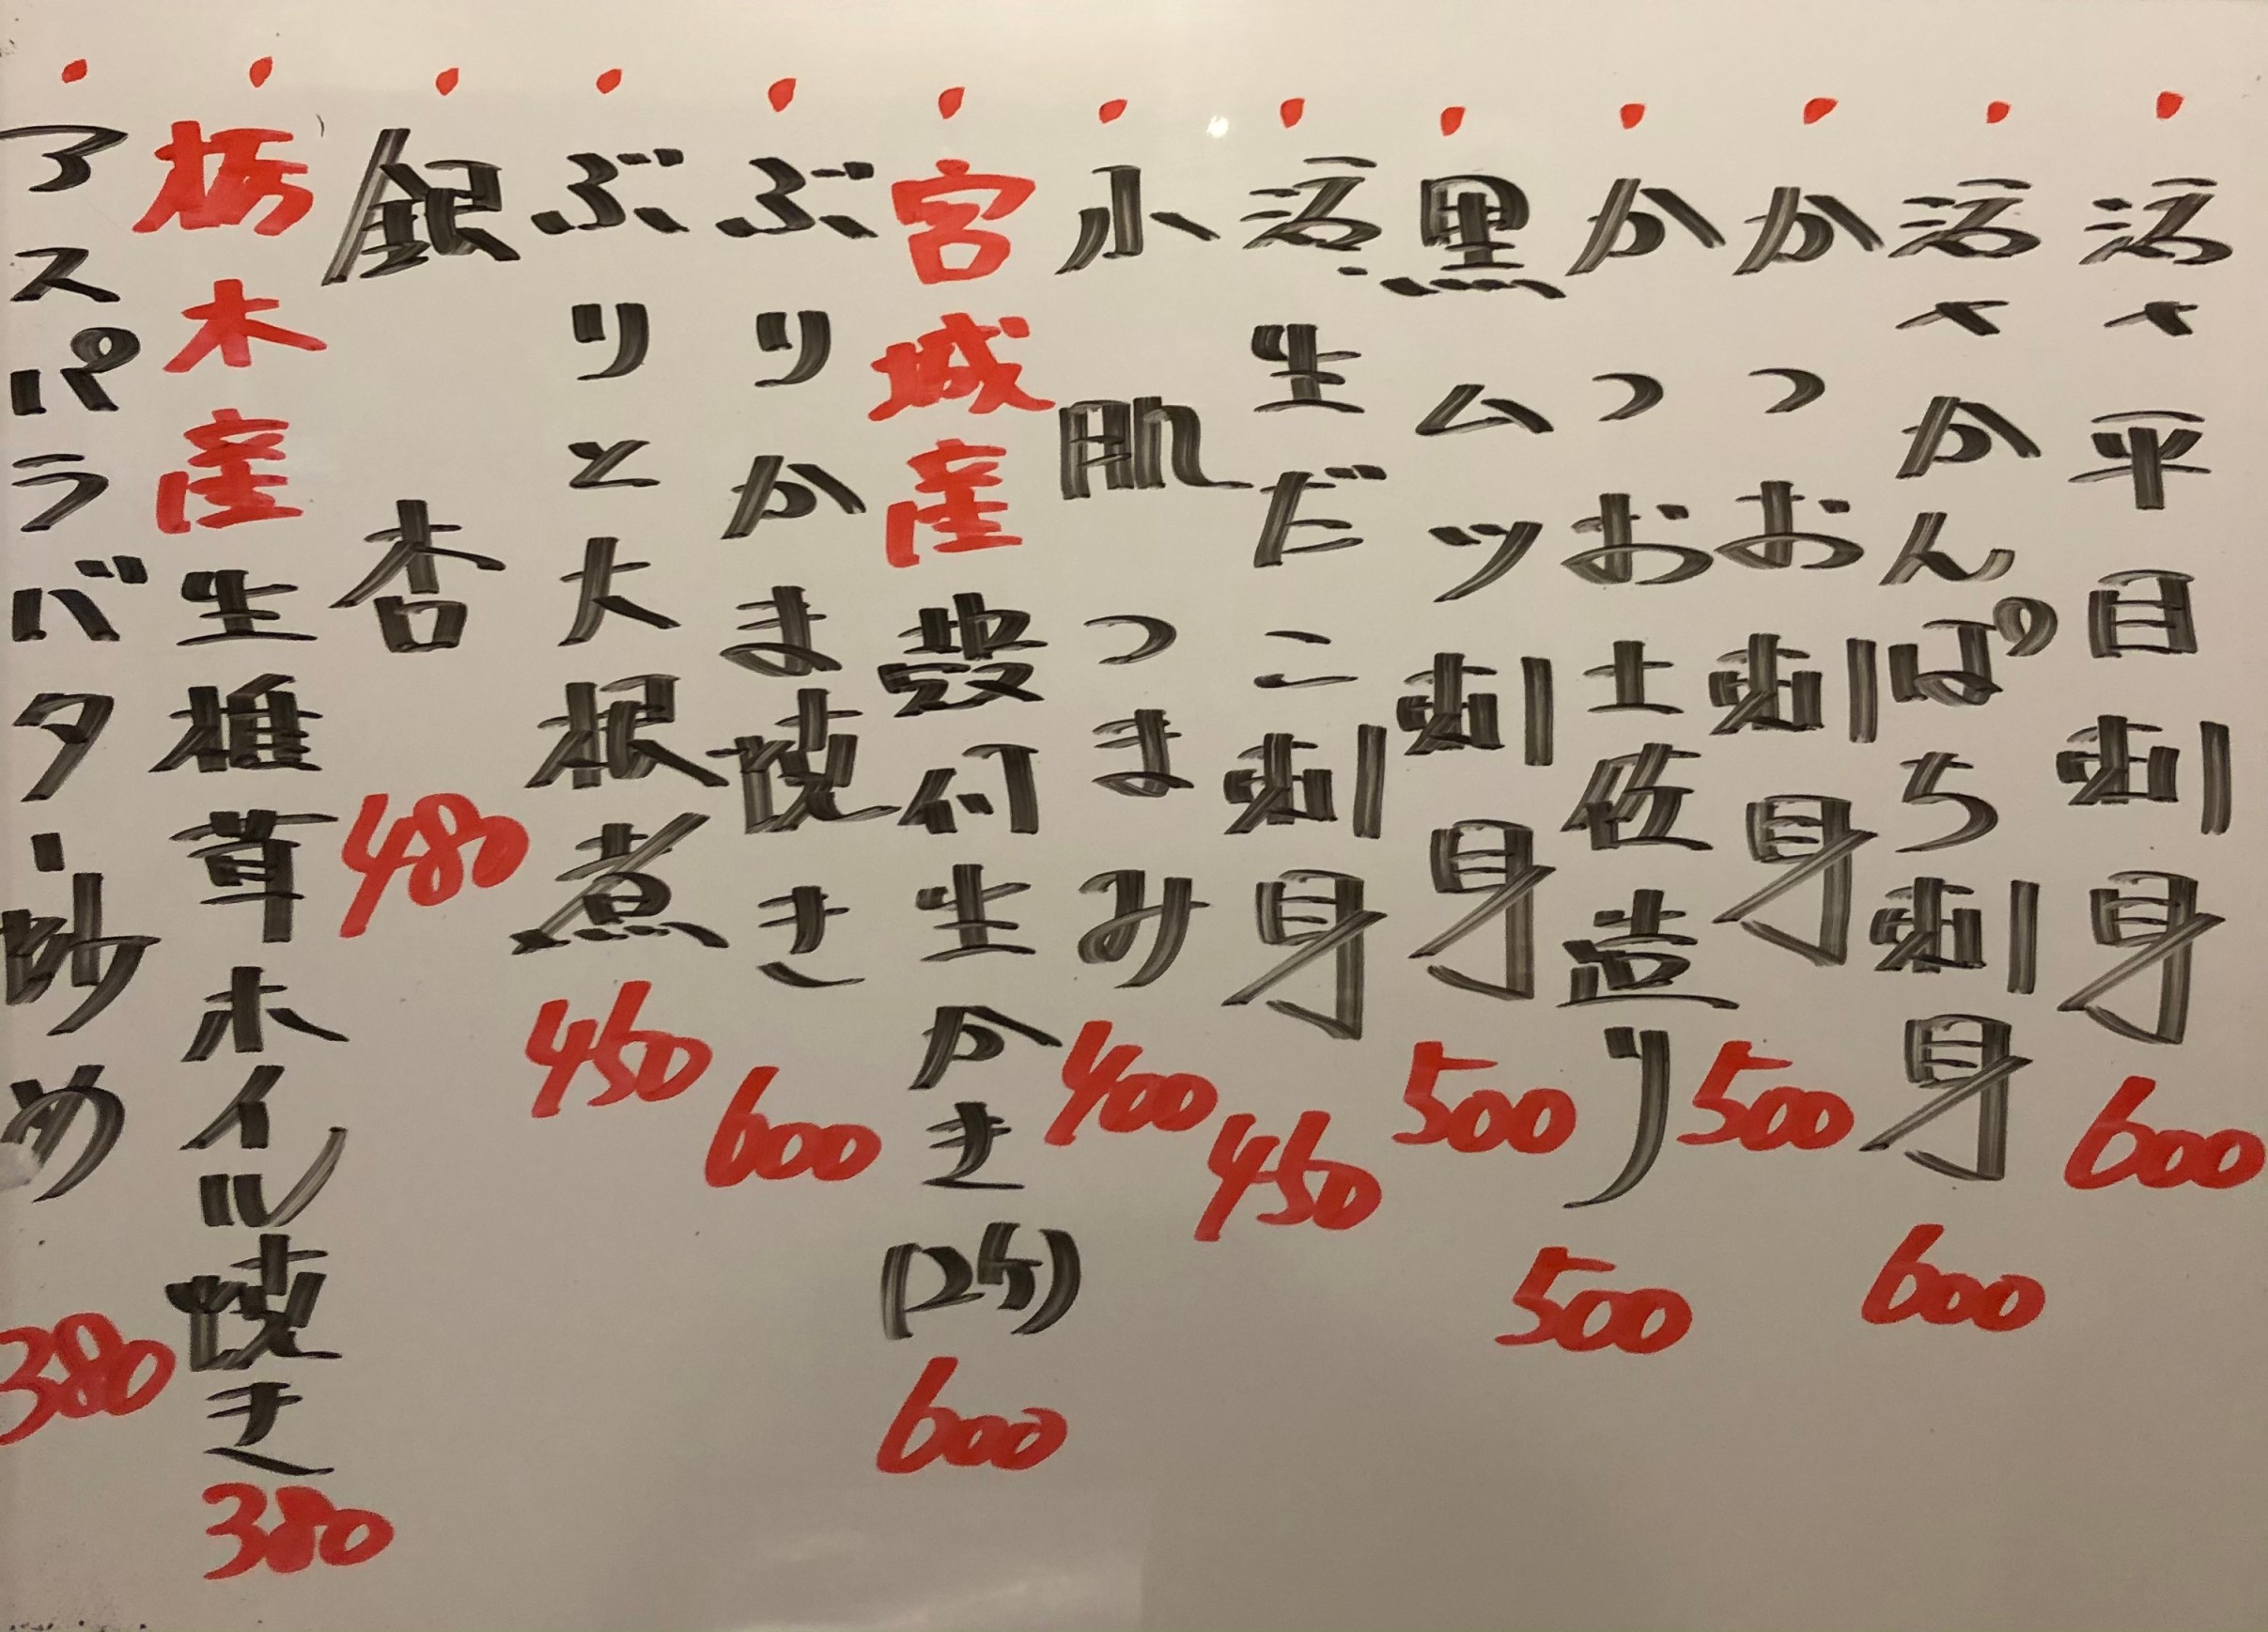 ・活〆平目刺身 600
・活〆かんぱち刺身 600
・かつお刺身 500
・かつお土佐造り 500
・黒ムツ刺身 500
・活〆生だこ刺身 450
・小肌つまみ 400
・宮城産殻付生かき(2ケ) 600
・ぶりかま焼き 600
・ぶりと大根煮 450
・銀杏 480
・栃木産生椎茸ホイル焼き 380
・アスパラバター炒め 380